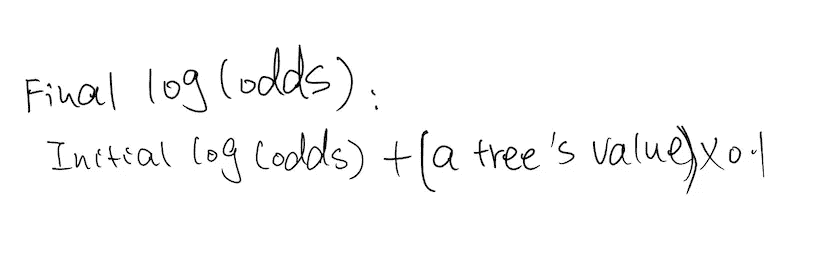 Final log(odds):
Initial log(odds) + (a tree's value) x 0.1